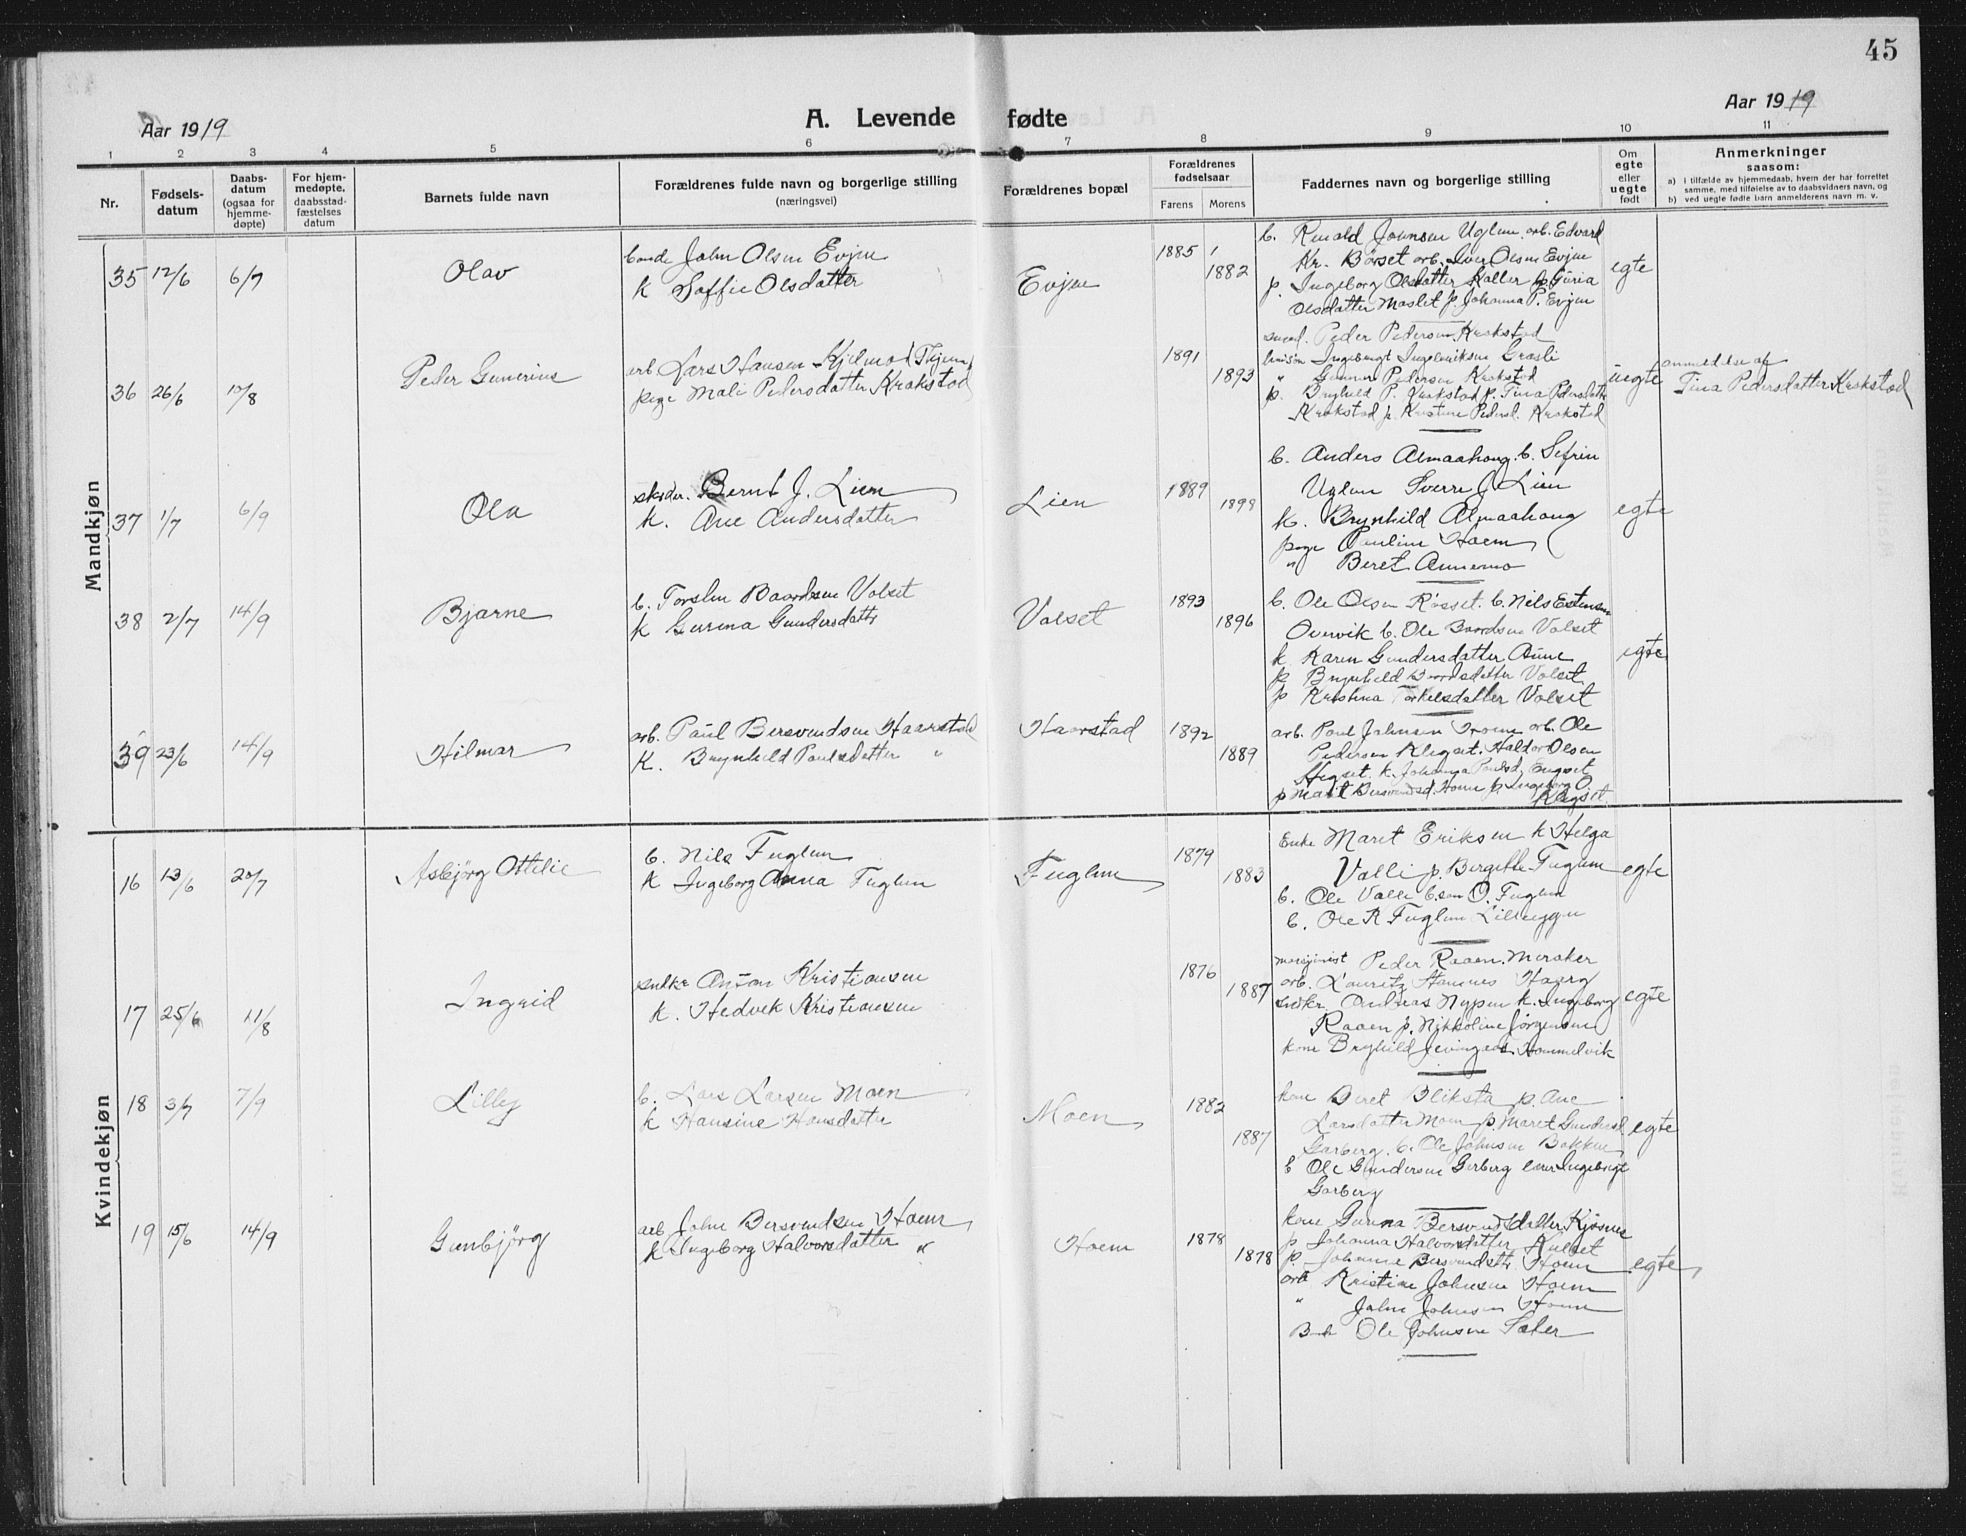 45
Aar 1919
A. Levende fødte
Aar 1919
1 2 3 4 5 6 7 8 9 10 11
Nr.
Fødsels-
datum
Daabs-
datum
(ogsaa for
hjemme-
døpte)
For hjem-
medøpte,
daabsstad-
fæstelses
datum
Barnets fulde navn
Forældrenes fulde navn og borgerlige stilling
(næringsvei)
Forældrenes bopæl
Forældrenes
fødselsaar
Farens Morens
Faddernes navn og borgerlige stilling
Om
egte
eller
uegte
født
Anmerkninger
saasom:
a) i tilfælde av hjemmedaab, hvem der har forrettet
samme, med tilføielse av to daabsvidners navn, og
b) ved uegte fødte barn anmelderens navn m. v.
Mandkjøn
35 12/6 6/7 Olav
bonde John Olsen Evjen
k Soffie Olsdatter
Evjen
1885
1882
b. Reinald Johnsen Uglem arb. Edvard
Kr. Børset arb. Iver Olsen Evjen
p. Ingeborg Olsdatter Kallar p. Guria
Olsdatter Maslet p. Johanna P. Evjen
egte
36 26/6 10/8 Peder Gunerius
arb Lars Hansen Kjelmo
pige Mali Pedersdatter Krokstad
1891
1893
Peder Pedersen Krokstad
Ingebrigt Ingebriktsen Græsli
" Gunnar Pedersen Krokstad
p. Brynhild P. Krokstad p. Tina Pedersdatter
Krokstad p. Kristine Pedersd. Krokstad
uegte
anmeldelse af
Tina Pedersdatter Krokstad
37 1/7 6/9 Ola
Bernt J. Lien
k. Ane Andersdatter
Lien
1889
1898
b. Anders Almaahaug b. Sefrin
Uglem Sverre J. Lien
k. Brynhild Almaahaug
pige Pauline Hoem
" Beret Aunemo
egte
38 2/7 14/9 Bjarne
b. Torsten Baardsen Volset
k Gurina Gundersdattr
Volset
1893
1896
b. Ole Olsen Røsset. b. Nils Estensen
Overvik b. Ole Baardsen Volset
k Karen Gundersdatter Aune
p Brynhild Baardsdatter Volset
p Kristina Torkelsdatter Volset
egte
39 23/6 14/9 Hilmar
arb. Paul Bersvendsen Haarstad
k. Brynhild Paulsdatter "
Haarstad
1892
1889
arb. Paul Johnsen Hoem arb. Ole
Pedersen Klegset. Haldor Olsen
Hegset. k. Johanna Paulsd. Engset
p Marit Bersvendsd. Hoem p Ingeborg O
Klegset
Kvindekjøn
16 13/6 20/7 Asbjørg Ottilie
b. Nils Fuglem
k Ingeborg Anna Fuglem
Fuglem
1879
1883
Enke Maret Eriksen k Helga
Valli p. Bergitte Fuglem
b. Ole Valli b.søn O. Fuglem
b. Ole R Fuglem Lillevggen
egte
17 25/6 11/8 Ingrid
snedkr Anton Kristiansen
k. Hedvek Kristiansen
1876
1887
maskinist Peder Raaen. Meraker
arb. Lauritz Hannes Haarg
snedkr. Andreas Nypen k. Ingeborg
Raaen p. Nikkoline Jørgensen
kone Brynhild Hommelvik
egte
18 3/7 7/9 Lilley
b. Lars Larsen Moen
k Hansine Hansdatter
Moen
1882
1887
kone Beret Bliksta p. Ane
Larsdatter Moen p Maret Gundersd
Garberg. b. Ole Johnsen Bakken
b Ole Gundersen Garberg lærer Ingebrigt
Garberg
egte
19 15/6 14/9 Gunbjørg
arb John Bersvendsen Hoem
k Ingeborg Halvorsdatter "
Hoem
1878
1878
kone Gurina Bersvendsdatter Kjøsnes
p Johanna Halvorsdatter Kulset
p. Johanne Bersvendsdtr. Hoem
arb Kristian Johnsen Hoem
" John Johnsen Hoem
Ole Johnsen Sæter
egte